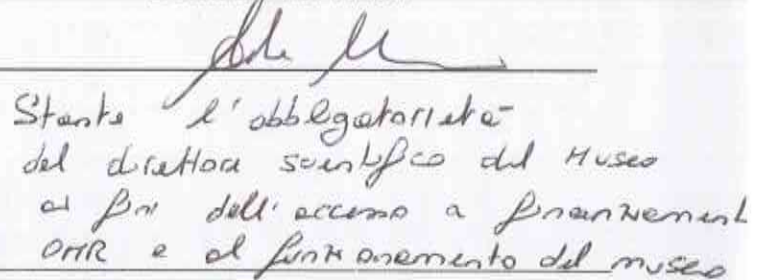 Stante l'obbligatorietà
del direttore scientifico del Museo
ai fini dell'accesso a finanziamenti
OMR e al funzionamento del museo